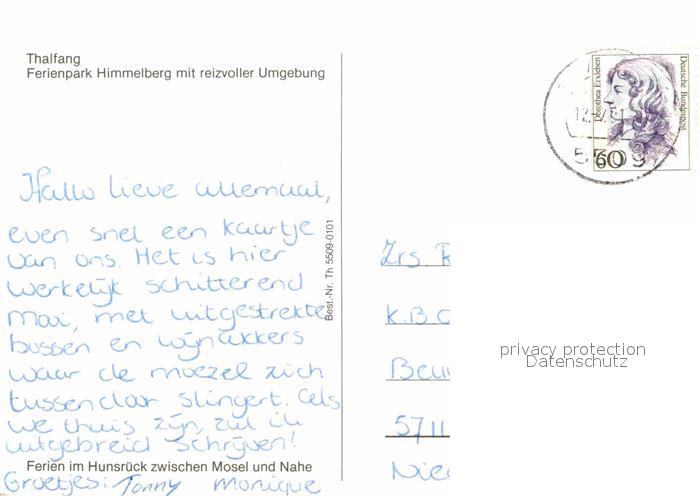 Thalfang
Ferienpark Himmelberg mit reizvoller Umgebung
Hallo lieve allemaal,
even snel een kaartje
van ons. Het is hier
werkelijk schitterend
mooi, met uitgestrekte
bossen en wijnakkers
waar de moezel zich
tussendoor slingert. Als
we thuis zijn, zal ik
uitgebreid schrijven!
Ferien im Hunsrück zwischen Mosel und Nahe
Groetjes: Tonny Monique
Best.-Nr. Th 5509-0101
Dorothea Erxleben
Deutsche Bundespost
60
5509
Zrs.
K.B.
5711
privacy protection
Datenschutz